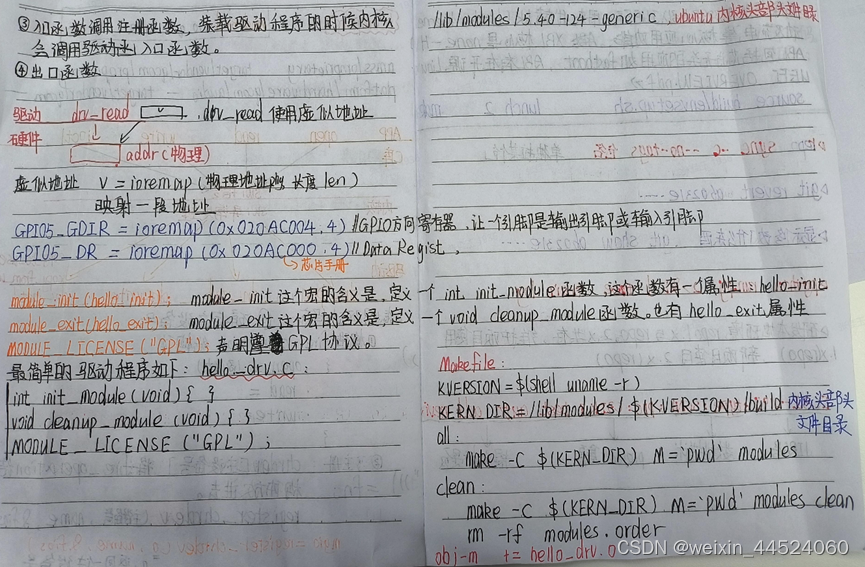 ③入口函数调用注册函数，装载驱动程序的时候内核
会调用驱动函入口函数。
④出口函数
驱动 drv_read v . drv_read 使用虚似地址
硬件
addr(物理)
虚似地址 V = ioremap (物理地址 长度 len)
映射一段地址
GPIO5_GDIR = ioremap (0x020AC004, 4) //GPIO方向寄存器，让一个引脚是输出引脚或输入引脚
GPIO5_DR = ioremap (0x020AC000, 4) // Data Regist,
芯片手册
module_init(hello_init); module_init 这个宏的含义是，定义一个 int init_module 函数，这个函数有一属性：hello_init
module_exit(hello_exit); module_exit 这个宏的含义是，定义一个 void cleanup_module 函数。也有 hello_exit 属性
MODULE_LICENSE("GPL"); 声明 GPL 协议。
最简单的驱动程序如下: hello_drv.c:
int init_module (void) { }
void cleanup_module (void) { }
MODULE_LICENSE ("GPL");
/lib/modules/5.40-124-generic ubuntu 内核头部头文件目录
Makefile:
KVERSION = $(shell uname -r)
KERN_DIR = /lib/modules/$(KVERSION)/build 内核头部头
文件目录
all:
make -C $(KERN_DIR) M=`pwd` modules
clean:
make -C $(KERN_DIR) M=`pwd` modules clean
rm -rf modules.order
obj-m += hello_drv.o
CSDN @weixin_44524060